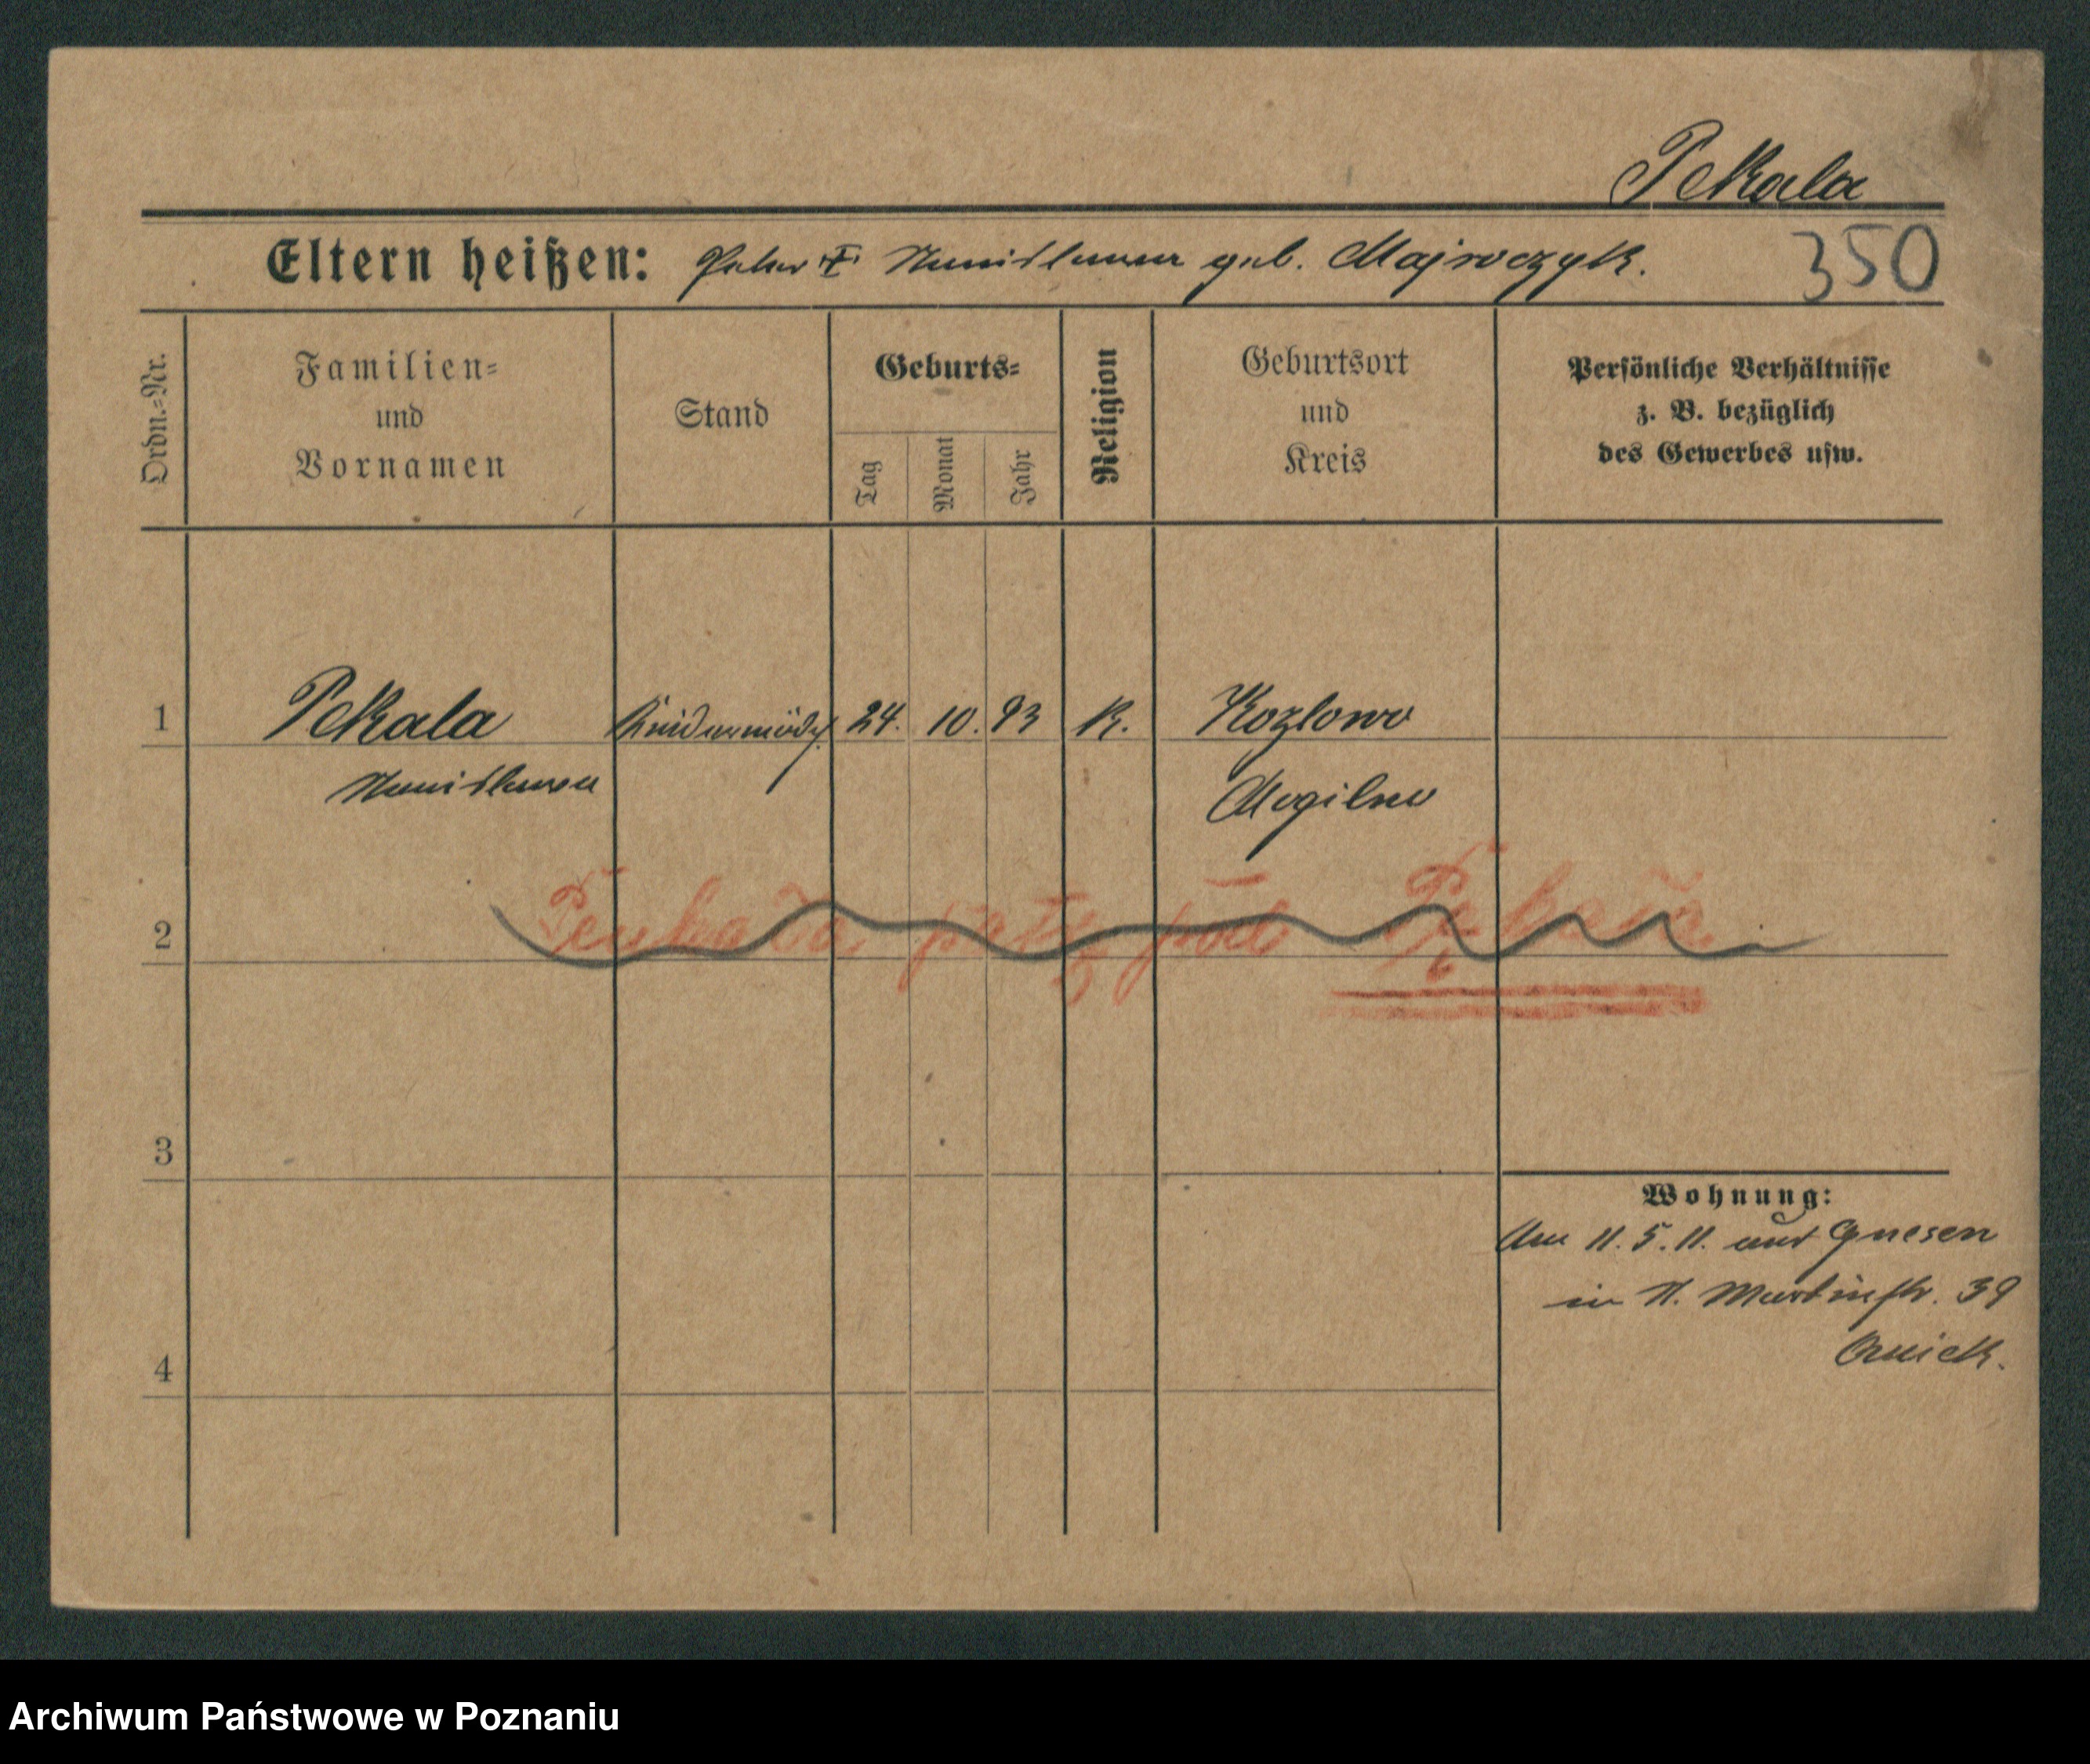 Pekala
Eltern heißen: Peter † Stanislawa geb. Majewczyk.
350
Ordn.=Nr.
Familien=
und
Vornamen
Stand
Geburts=
Tag
Monat
Jahr
Religion
Geburtsort
und
Kreis
Persönliche Verhältnisse
z. B. bezüglich
des Gewerbes usw.
1 Pekala Kindermädch 24. 10. 93 K. Kozlowo
Stanislawa Mogilno
2 patrz pod Pękała
3
4
Wohnung:
Am 11.5.11. aus Gnesen
in St. Martinstr. 39
Archiwum Państwowe w Poznaniu